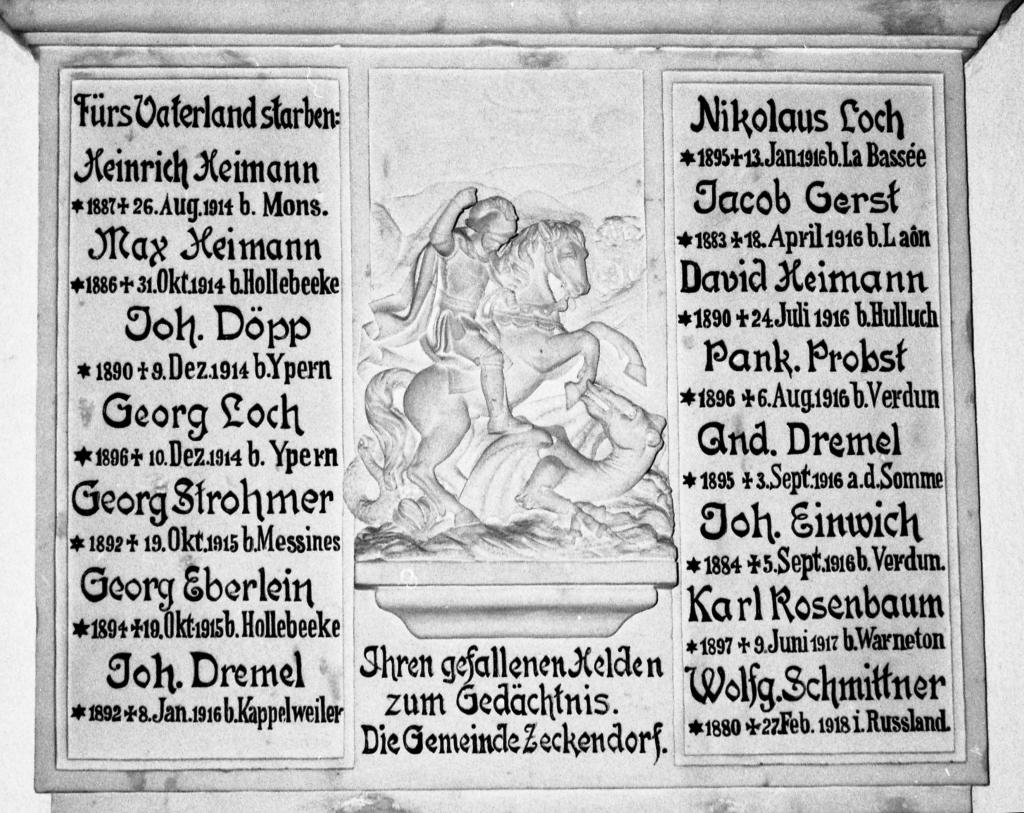 Fürs Vaterland starben:
Heinrich Heimann
✶1887✝26.Aug.1914 b. Mons.
Max Heimann
✶1886✝31.Okt.1914 b.Hollebeeke
Joh. Döpp
✶1890✝9.Dez.1914 b.Ypern
Georg Loch
✶1896✝10.Dez.1914 b. Ypern
Georg Strohmer
✶1892✝19.Okt.1915 b.Messines
Georg Eberlein
✶1894✝19.Okt.1915 b. Hollebeeke
Joh. Dremel
✶1892✝8.Jan.1916 b.Kappelweiler
Ihren gefallenen Helden
zum Gedächtnis.
Die Gemeinde Zeckendorf.
Nikolaus Loch
✶1895✝13.Jan.1916 b.La Bassée
Jacob Gerst
✶1883✝18.April 1916 b.Laôn
David Heimann
✶1890✝24.Juli 1916 b.Hulluch
Pank. Probst
✶1896✝6.Aug.1916 b.Verdun
And. Dremel
✶1895✝3.Sept.1916 a.d.Somme
Joh. Einwich
✶1884✝5.Sept.1916 b.Verdun.
Karl Rosenbaum
✶1897✝9.Juni 1917 b.Warneton
Wolfg. Schmittner
✶1880✝27.Feb. 1918 i.Russland.